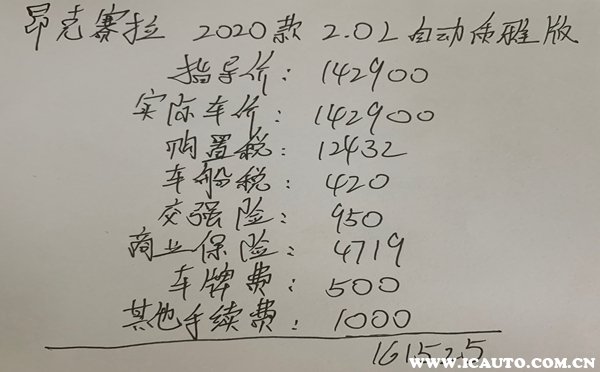 昂克赛拉 2020款 2.0L自动质雅版
指导价: 142900
实际车价: 142900
购置税: 12432
车船税: 420
交强险: 950
商业保险: 4719
车牌费: 500
其他手续费: 1000
161525
WWW.ICAUTO.COM.CN